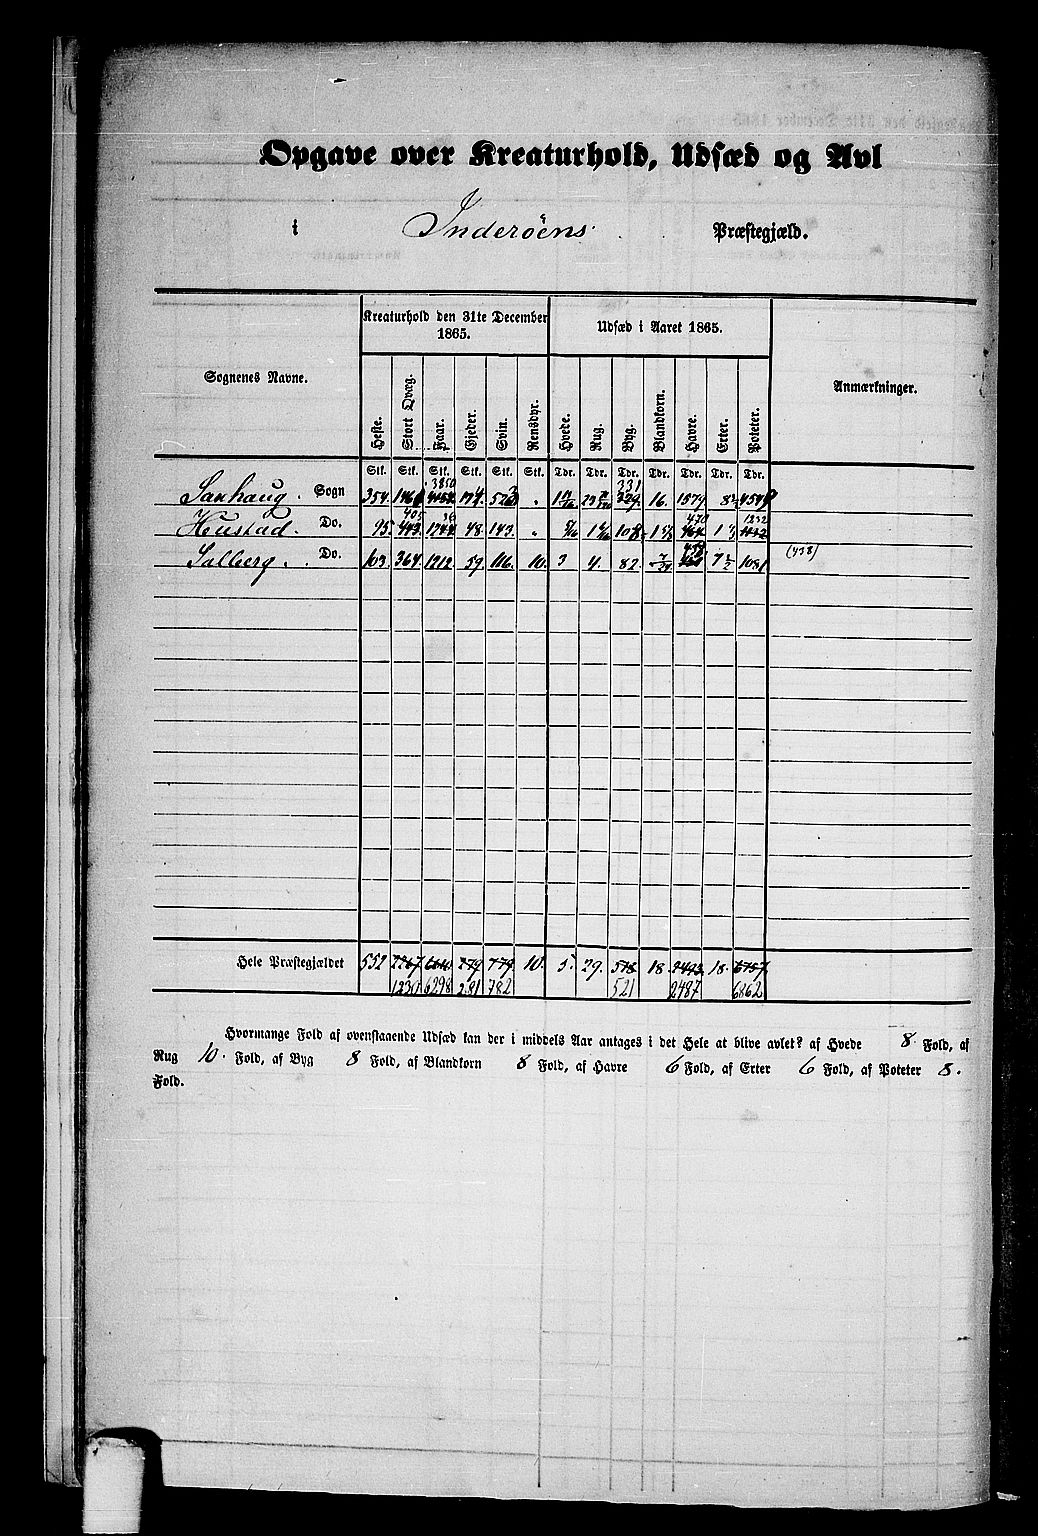 Opgave over Kreaturhold, Udsæd og Avl
i Inderöens Præstegjæld.
Sognenes Navne. Kreaturhold den 31te December 1865. Udsæd i Aaret 1865. Anmærkninger.
Heste. Stort Qvæg. Faar. Gjeder. Sviin. Rensdyr. Hvede. Rug. Byg. Blandkorn. Havre. Erter. Poteter.
Stk. Stk. Stk. Stk. Stk. Stk. Tdr. Tdr. Tdr. Tdr. Tdr. Tdr. Tdr.
3850 331
Saxhaug. Sogn 354. 174. 523 " 329. 16. 1579
405 470 1232
Hustad. Do. 95. 443. 1244 48. 143. " 5/16 108
Salberg. Do. 103. 364. 1212 59. 116. 10. 3 4. 82 7/24 7 1/2 1081 (438)
Hele Præstegjældet 552 2267 279 779 10. 5. 29. 518 18. 2493 18. 6757
6298 281 782 521 2487 6862
Hvormange Fold af ovenstaaende Udsæd kan der i middels Aar antages i det Hele at blive avlet? af Hvede 8. Fold, af
Rug 10. Fold, af Byg 8 Fold, af Blandkorn 8 Fold, af Havre 6 Fold, af Erter 6 Fold, af Poteter 8.
Fold.